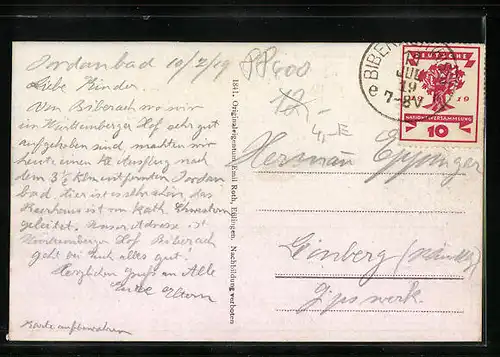 Jordanbad 10/7/19
Liebe Kinder.
Von Biberach wo wir
im Württemberger Hof sehr gut
aufgehoben sind machten wir
heute einen Ausflug nach
dem 3½ klm entfernten Jordan
bad. Hier ist es sehr schön, das
Kurhaus ist von kath. Schwestern
geleitet. Unsere Adresse ist
Württemberger Hof Biberach
geht bei Euch alles gut?
Herzlichen Gruß an Alle
Eure Eltern
Karte aufbewahren
1841. Originaleigentum Emil Roth, Eßlingen. Nachbildung verboten
BIBER
JUL
19
7-8V
e
DEUTSCHE
1919
NATIONALVERSAMMLUNG
10
Hermann Eppinger
Gipswerk.